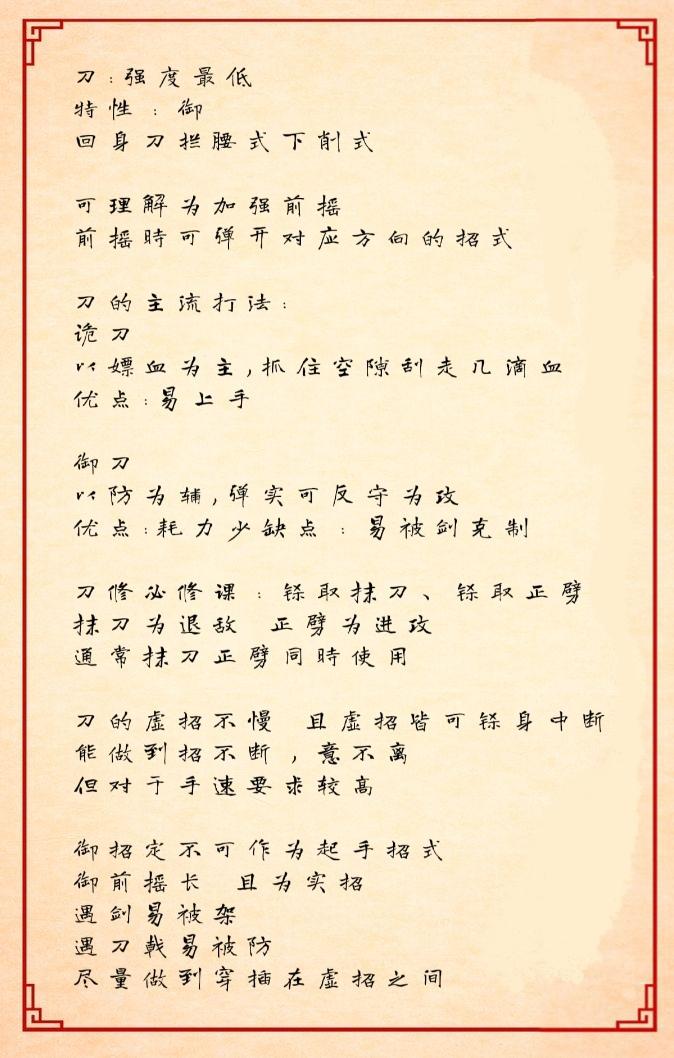 刀:强度最低
特性:御
回身刀拦腰式下削式
可理解为加强前摇
前摇時可弹开对应方向的招式
刀的主流打法:
诡刀
以嫖血为主,抓住空隙刮走几滴血
优点:易上手
御刀
以防为辅,弹实可反守为攻
优点:耗力少缺点:易被剑克制
刀修必修课:铩取抹刀、铩取正劈
抹刀为退敌 正劈为进攻
通常抹刀正劈同時使用
刀的虚招不慢 且虚招皆可铩身中断
能做到招不断,意不离
但对于手速要求较高
御招定不可作为起手招式
御前摇长 且为实招
遇剑易被架
遇刀戟易被防
尽量做到穿插在虚招之间